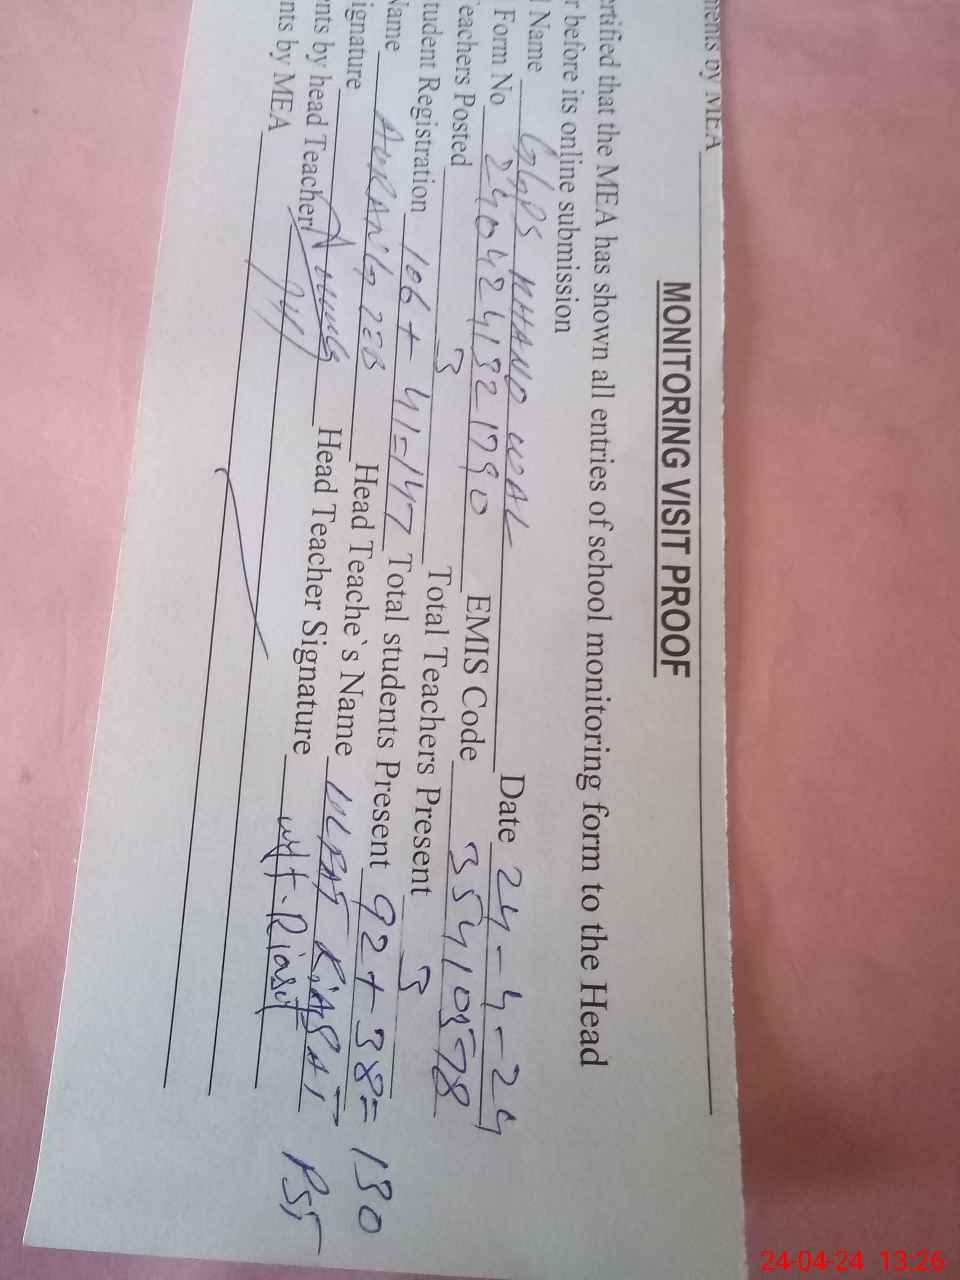 ments by MEA
MONITORING VISIT PROOF
ertified that the MEA has shown all entries of school monitoring form to the Head
r before its online submission
l Name GGPS KHANO WAL Date 24-4-24
Form No 2404241321790 EMIS Code 35410378
Teachers Posted 3 Total Teachers Present 3
tudent Registration 106 + 41=147 Total students Present 92+38= 130
Name AURANGZEB Head Teache`s Name RIASAT PST
ignature Head Teacher Signature Riasat
nts by head Teacher
nts by MEA
24-04-24 13:26